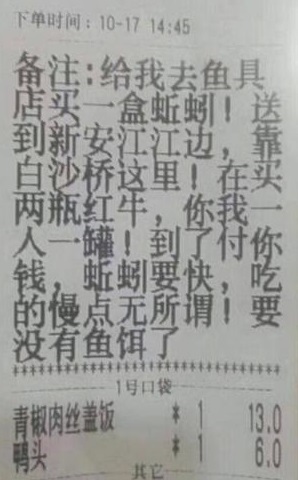 下单时间：10-17 14:45
备注:给我去鱼具
店买一盒蚯蚓！送
到新安江江边，靠
白沙桥这里！在买
两瓶红牛，你我一
人一罐！到了付你
钱，蚯蚓要快，吃
的慢点无所谓！要
没有鱼饵了
********************************
1号口袋
青椒肉丝盖饭 * 1 13.0
鸭头 * 1 6.0
其它